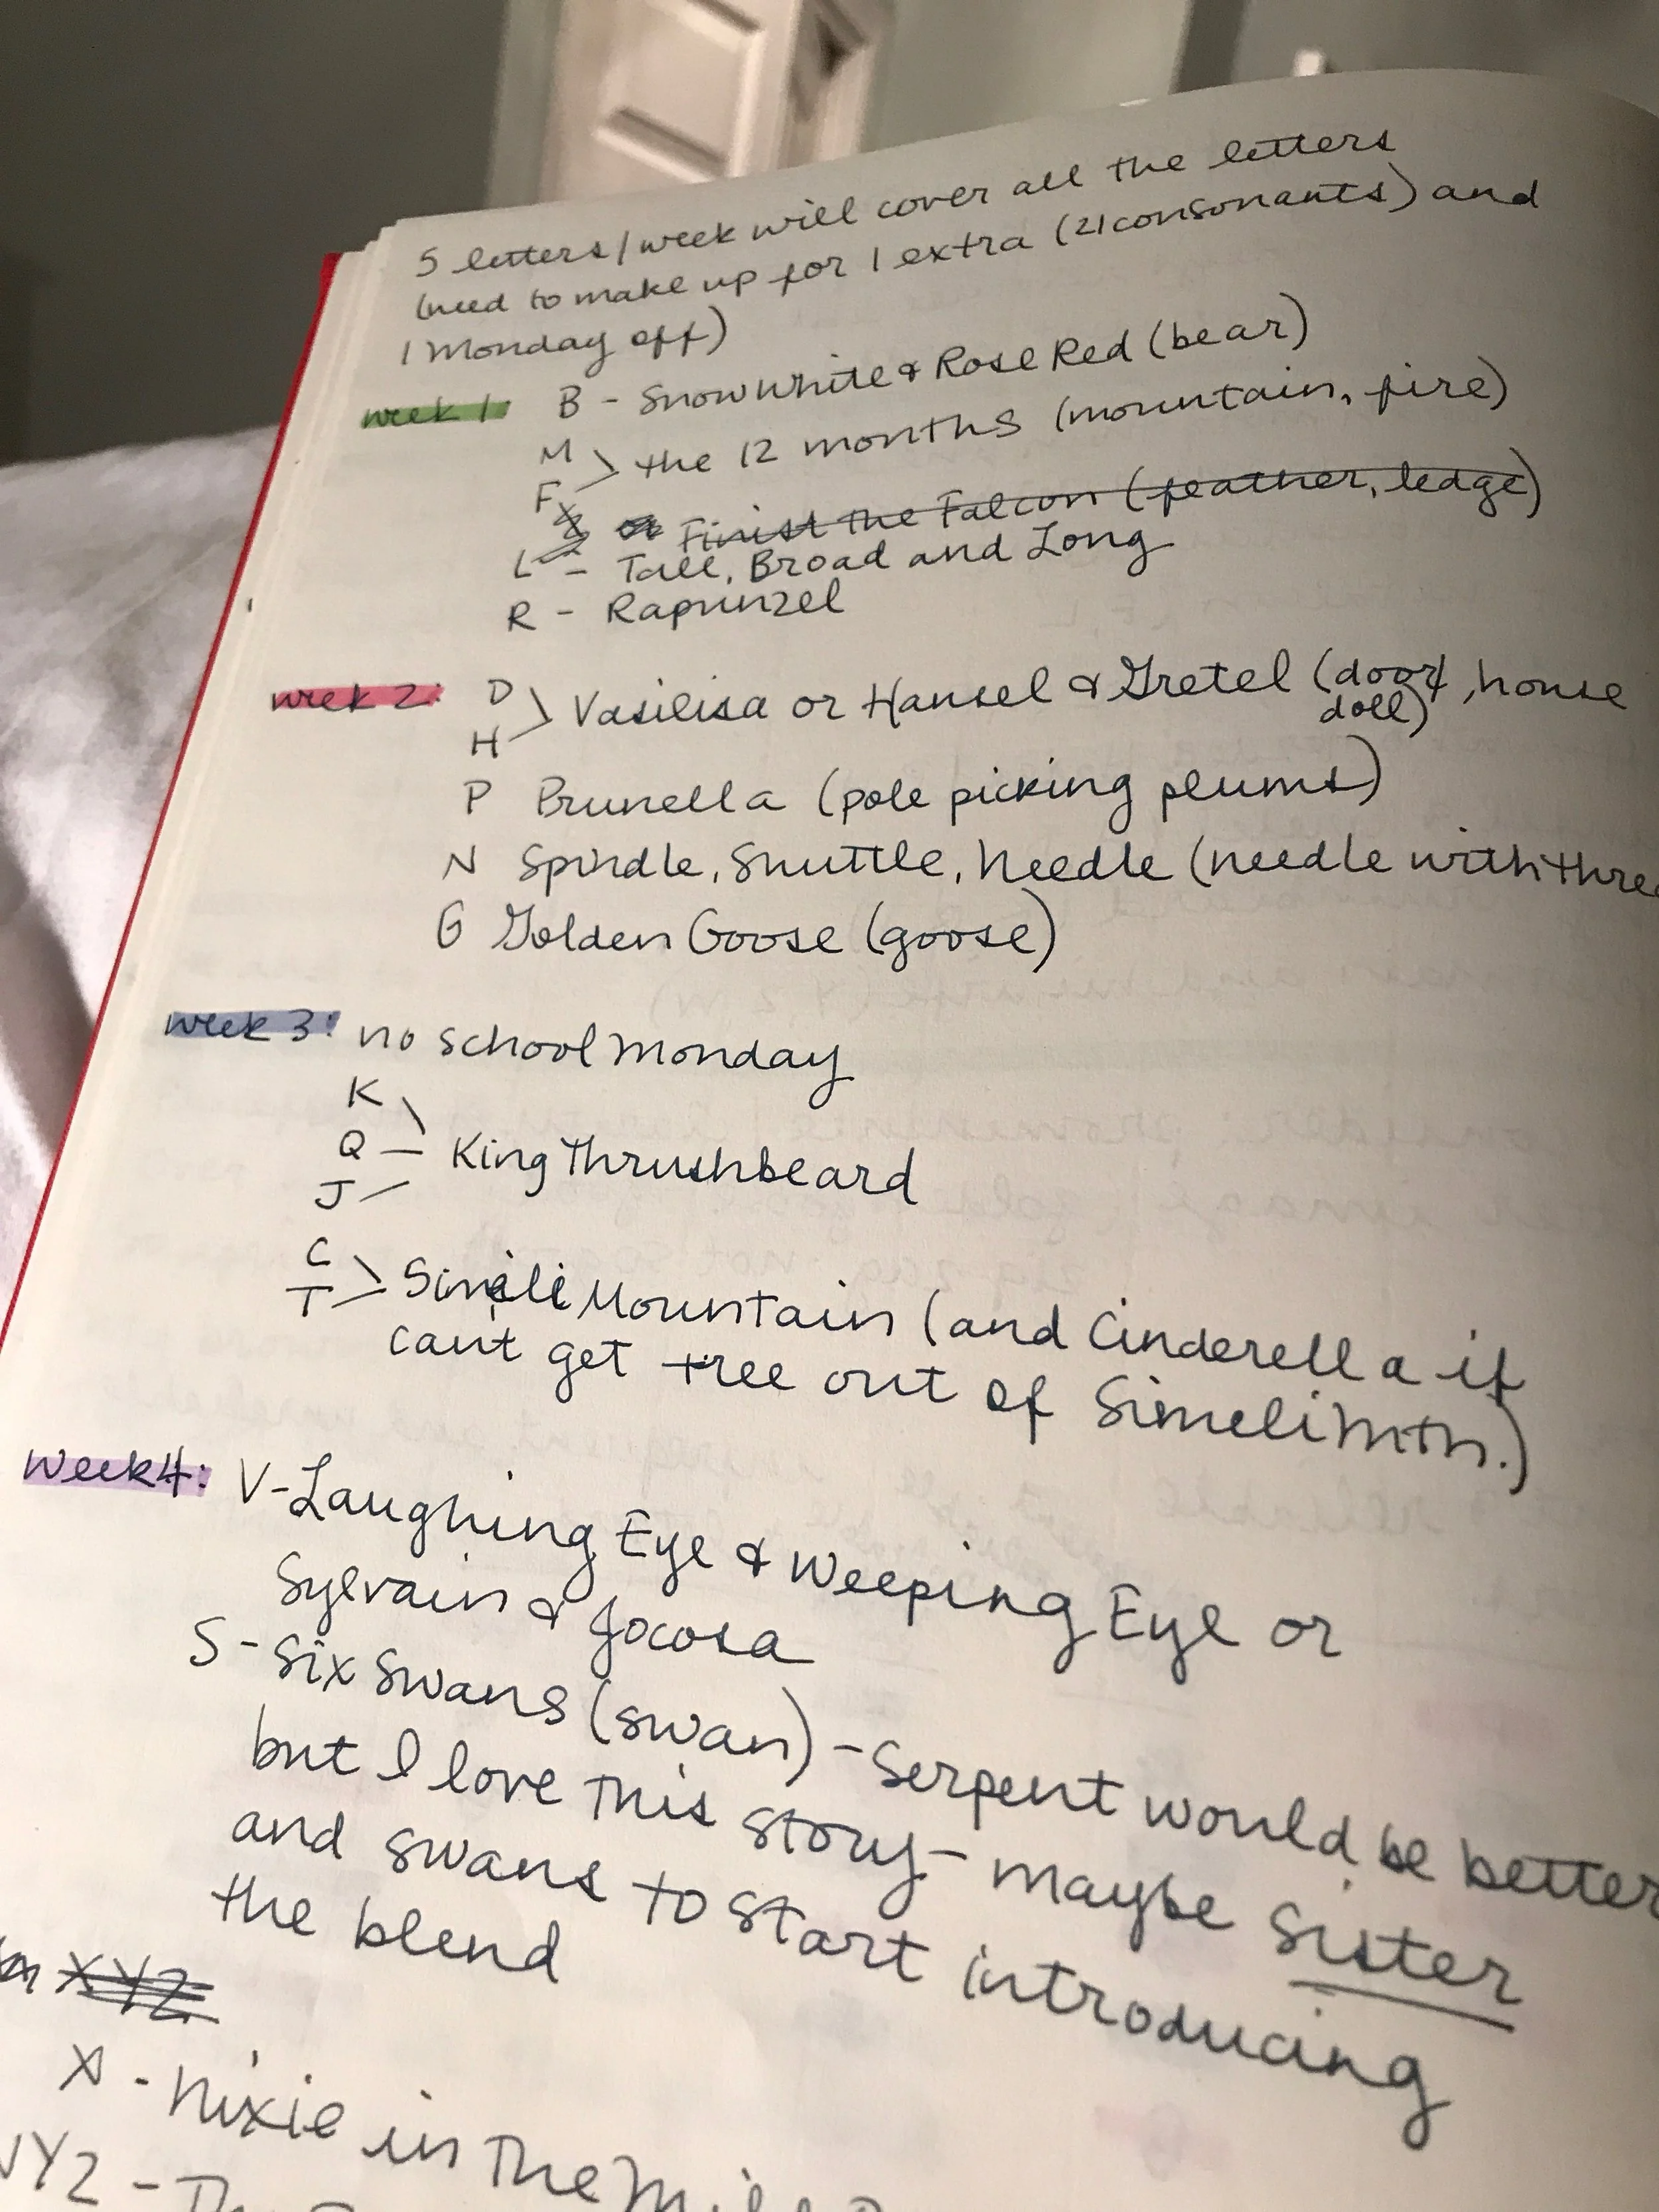 5 letters/week will cover all the letters
(need to make up for 1 extra (21 consonants) and
1 Monday off)
week 1: B - Snow White & Rose Red (bear)
M
F > the 12 months (mountain, fire)
Finist the Falcon (feather, ledge)
L - Tall, Broad and Long
R - Rapunzel
week 2: D
H > Vasilisa or Hansel & Gretel (door, house
doll)
P Prunella (pole picking plums)
N Spindle, Shuttle, Needle (needle with
G Golden Goose (goose)
week 3: no school Monday
K
Q - King Thrushbeard
J
C
T > Simeli Mountain (and Cinderella if
can't get tree out of Simeli Mtn.)
Week 4: V - Laughing Eye & Weeping Eye or
Sylvain & Jocosa
S - Six Swans (swan) - Serpent would be better
but I love this story - maybe sister
and swans to start introducing
the blend
XYZ
X - Nixie in the
YZ -